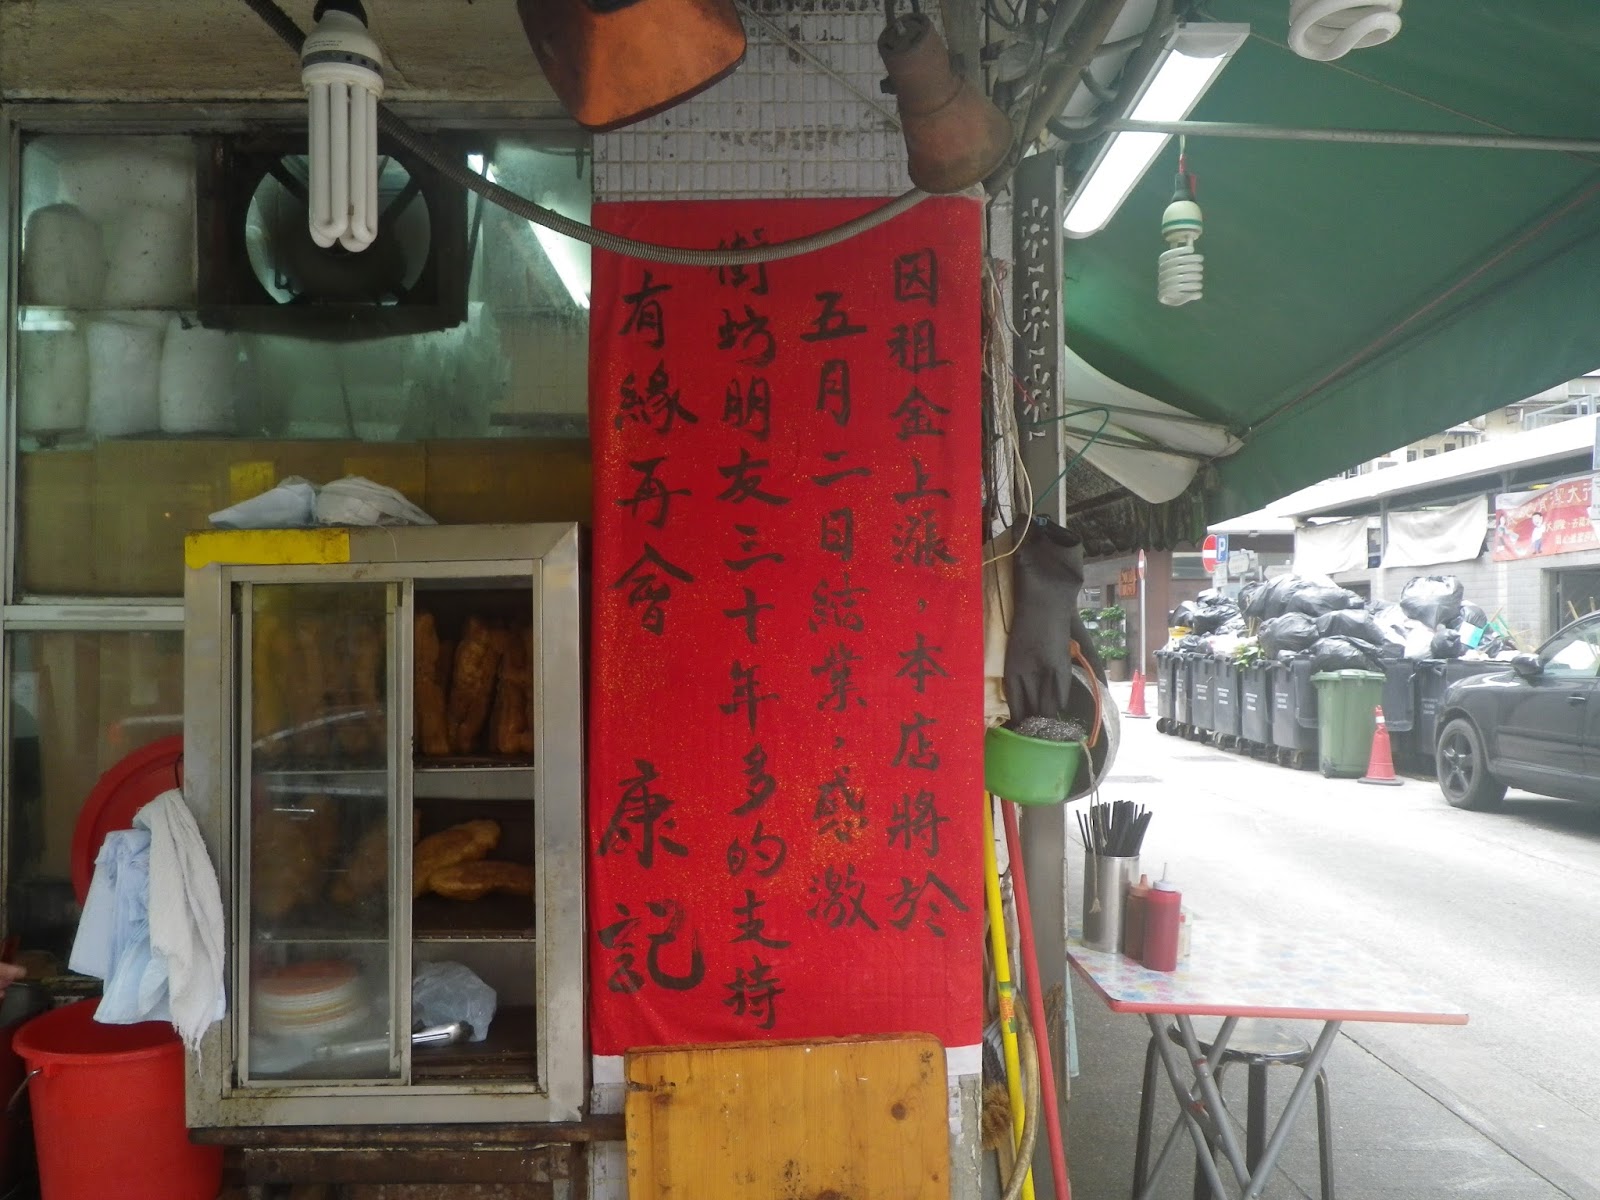 因租金上漲，本店將於
五月二日結業，感激
街坊朋友三十年多的支持
有緣再會 康記